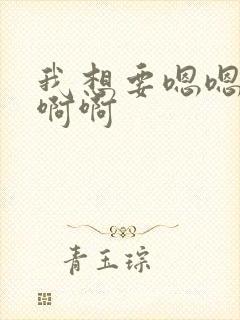 我想要嗯嗯
啊啊
青玉琮